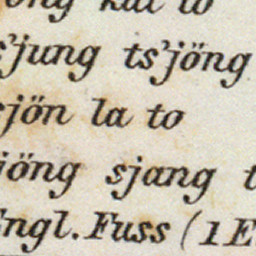 kat to
s'jung ts'jöng
sjön la to
jöng sjang t
Engl. Fuss (1 E